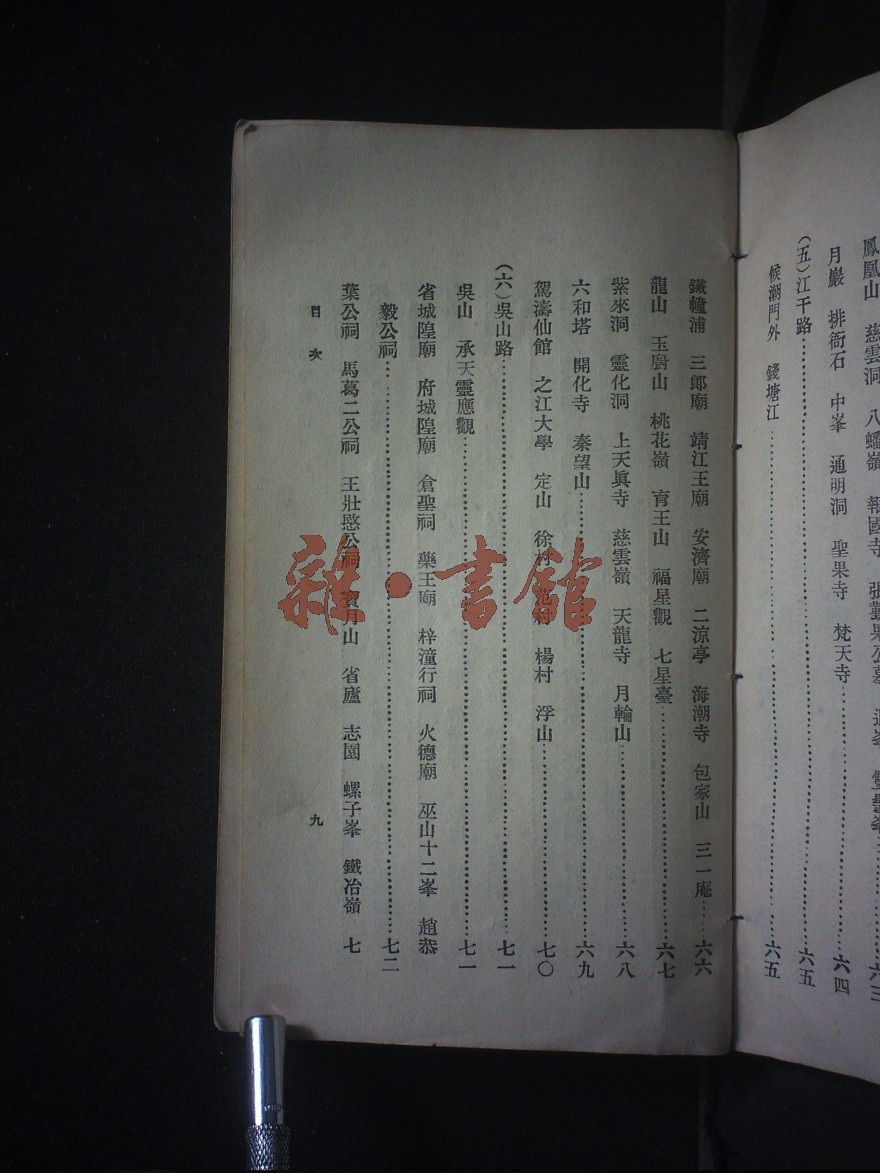 鳳凰山 慈雲洞 八蟠嶺 報國寺 張勤果公墓
月巖 排衙石 中峯 通明洞 聖果寺 梵天寺……六四
(五)江干路……六五
候潮門外 錢塘江……六五
鐵幢浦 三郎廟 靖江王廟 安濟廟 二涼亭 海潮寺 包家山 三一庵……六六
龍山 玉廚山 桃花嶺 育王山 福星觀 七星臺……六七
紫來洞 靈化洞 上天眞寺 慈雲嶺 天龍寺 月輪山……六八
六和塔 開化寺 秦望山……六九
駕濤仙館 之江大學 定山 徐村 范村 楊村 浮山……七〇
(六)吳山路……七一
吳山 承天靈應觀……七一
省城隍廟 府城隍廟 倉聖祠 藥王廟 梓潼行祠 火德廟 巫山十二峯 趙恭
毅公祠……七二
葉公祠 馬葛二公祠 王壯愍公祠 寳月山 省廬 志園 螺子峯 鐵冶嶺 七
目次
九
雜·書館